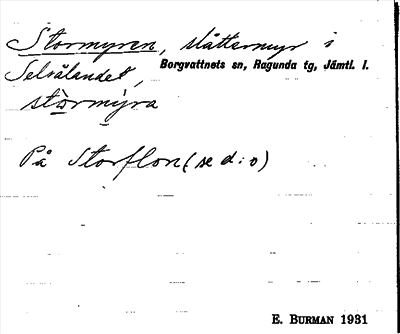 Stormyren, slåttermyr i
Selsålandet, Borgvattnets sn, Ragunda tg, Jämtl. l.
stòrmýra
På Storflon (se d:o)
E. BURMAN 1931